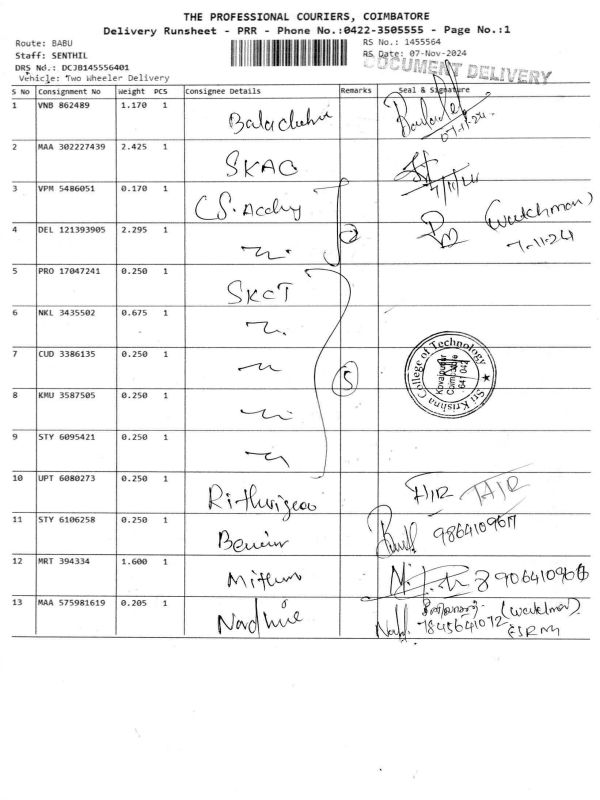 THE PROFESSIONAL COURIERS, COIMBATORE
Delivery Runsheet - PRR - Phone No.:0422-3505555 - Page No.:1
Route: BABU
RS No.: 1455564
Staff: SENTHIL
RS Date: 07-Nov-2024
DRS No.: DCJB145556401
DOCUMENT DELIVERY
Vehicle: Two Wheeler Delivery
S No Consignment No Weight PCS Consignee Details Remarks Seal & Signature
1 VNB 862489 1.170 1
07-11-24
2 MAA 302227439 2.425 1 SKAC
7/11/24
3 VPM 5486051 0.170 1
(watchman)
4 DEL 121393905 2.295 1 2
7-11-24
5 PRO 17047241 0.250 1 SKCT
6 NKL 3435502 0.675 1
7 CUD 3386135 0.250 1
Sri Krishna College of Technology
Kovaipudur
Coimbatore
641 042
8 KMU 3587505 0.250 1 5
9 STY 6095421 0.250 1
10 UPT 6080273 0.250 1
11 STY 6106258 0.250 1
12 MRT 394334 1.600 1 Mithun
13 MAA 575981619 0.205 1
7845641072